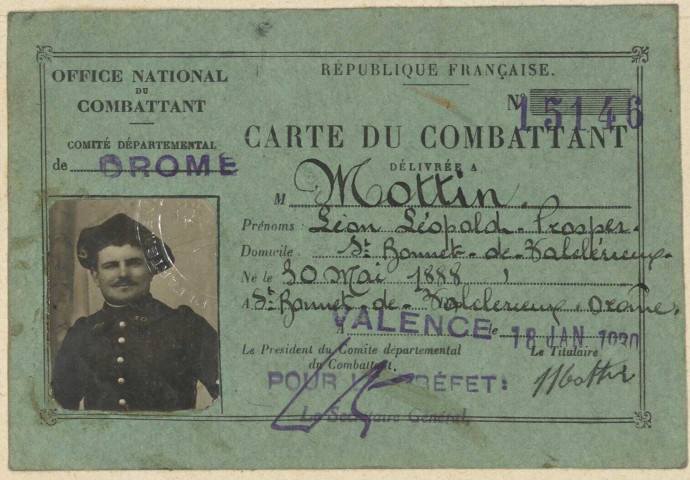 OFFICE NATIONAL
DU
COMBATTANT
COMITÉ DÉPARTEMENTAL
de DROME
RÉPUBLIQUE FRANÇAISE.
N° 15146
CARTE DU COMBATTANT
DÉLIVRÉE A
M Mottin.
Prénoms: Léon Léopold-Prosper-
Domicile: St Bonnet-de-Valclérieux-
Né le 30 Mai 1888
A St Bonnet-de-Valclérieux. Drôme.
A VALENCE le 18 JAN. 1930
Le President du Comité départemental
du Combattant,
Le Titulaire
POUR LE PRÉFET:
Mottin
Le Secrétaire Général,